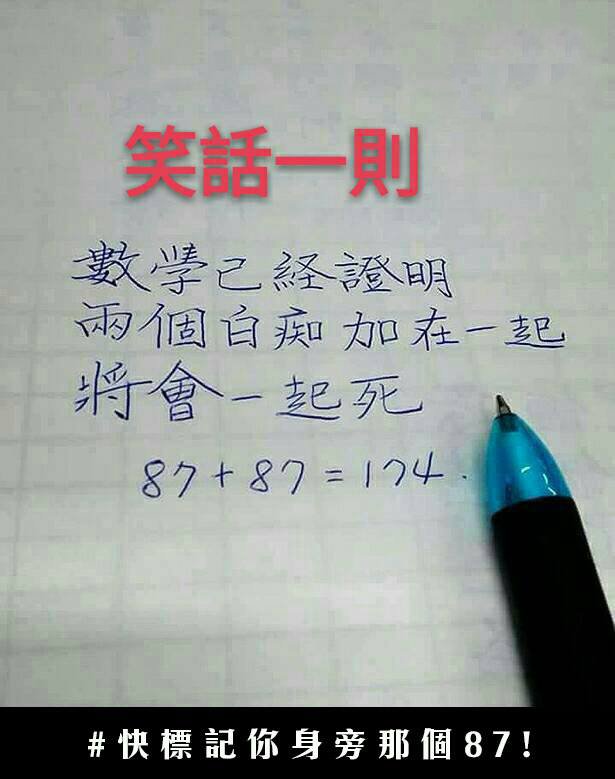 笑話一則
數學已経證明
兩個白痴加在一起
將會一起死
87+87=174.
#快標記你身旁那個87!